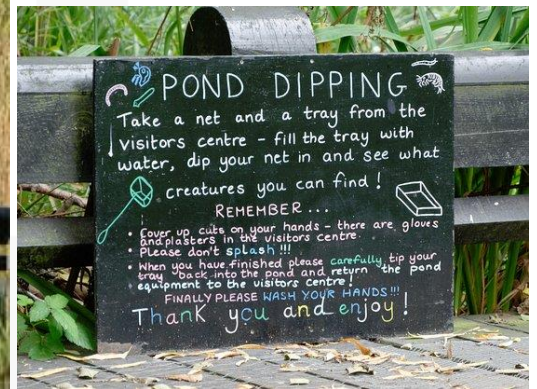 POND DIPPING
Take a net and a tray from the
visitors centre - fill the tray with
water, dip your net in and see what
creatures you can find!
REMEMBER...
• Cover up cuts on your hands - there are gloves
and plasters in the visitors centre.
• Please don't splash!!!
• When you have finished please carefully tip your
tray back into the pond and return the pond
equipment to the visitors centre!
FINALLY PLEASE WASH YOUR HANDS!!!
Thank you and enjoy!